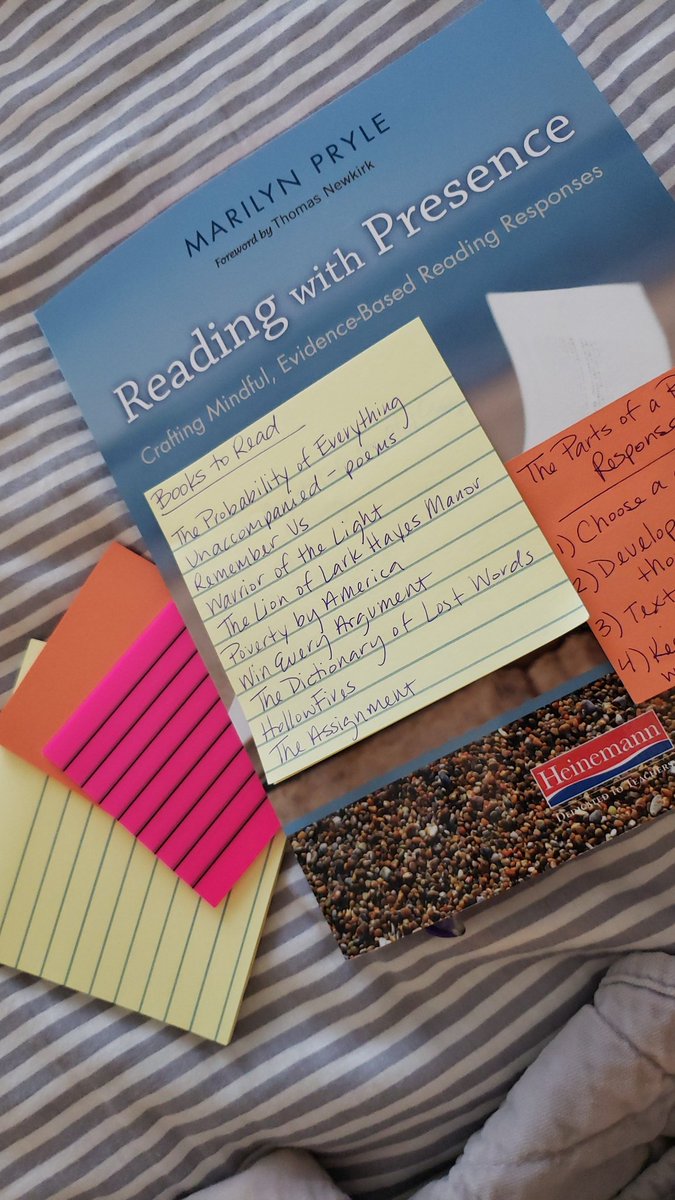 MARILYN PRYLE
Foreword by Thomas Newkirk
Reading with Presence
Crafting Mindful, Evidence-Based Reading Responses
Books to Read
The Probability of Everything
Unaccompanied - poems
Remember Us
Warrior of the Light
The Lion of Lark Hayes Manor
Poverty by America
Win Every Argument
The Dictionary of Lost Words
Hollow Fires
The Assignment
The Parts of a
Response
1) Choose a
2) Develop
3) Text
4)
Heinemann
DEDICATED TO TEACHERS